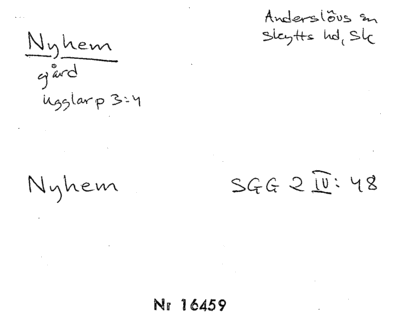 Nyhem
gård
Ugglarp 3:4
Anderslövs sn
Skytts hd, Sk
Nyhem
SGG 2 IV: 48
Nr 16459